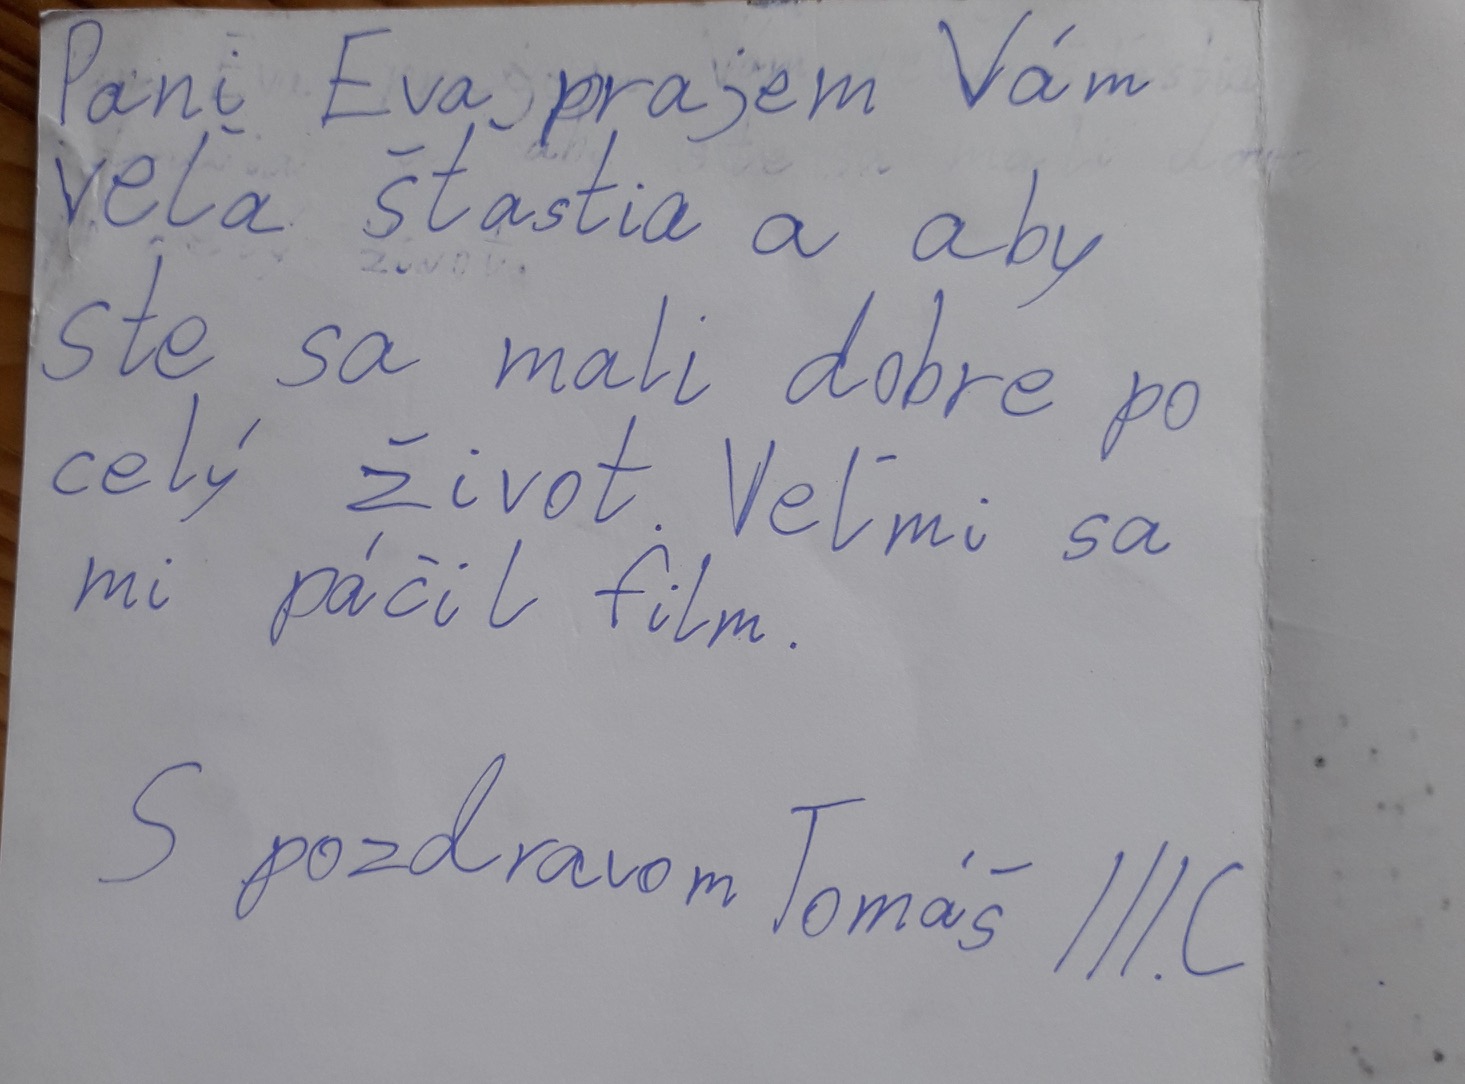 Pani Eva, prajem Vám
veľa šťastia a aby
ste sa mali dobre po
celý život. Veľmi sa
mi páčil film.
S pozdravom Tomáš III.C